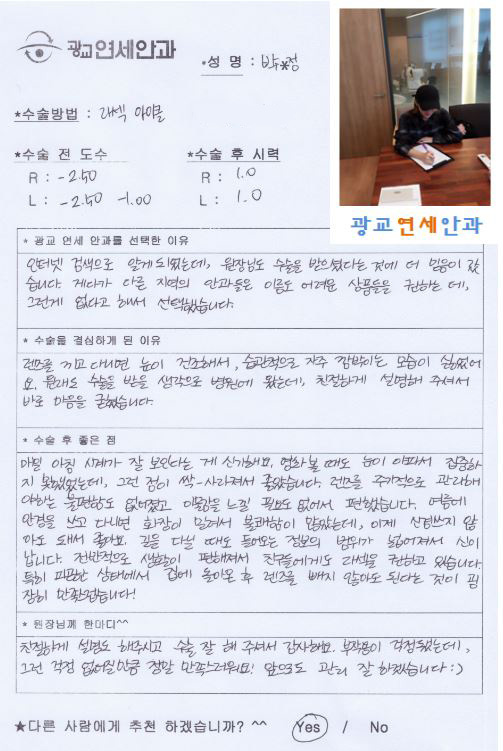 광교연세안과
*성 명 : 박*정
*수술방법 : 라섹 아이콜
*수술 전 도수
*수술 후 시력
R : -2.50
R : 1.0
L : -2.50 -1.00
L : 1.0
광교연세안과
* 광교 연세 안과를 선택한 이유
인터넷 검색으로 알게되었는데, 원장님도 수술을 받으셨다는 것에 더 믿음이 갔
습니다. 게다가 다른 지역의 안과들은 이름도 어려운 상품들을 권하는 데,
그런게 없다고 해서 선택했습니다.
* 수술을 결심하게 된 이유
렌즈를 끼고 다니면 눈이 건조해서, 습관적으로 자주 깜박이는 모습이 싫었어
요. 원래도 수술을 받을 생각으로 병원에 왔는데, 친절하게 설명해 주셔서
바로 마음을 굳혔습니다.
* 수술 후 좋은 점
매일 아침 시계가 잘 보인다는 게 신기해요. 영화볼 때도 눈이 아파서 집중하
지 못했었는데, 그런 점이 싹-사라져서 좋았습니다. 렌즈를 주기적으로 관리해
야하는 불편함도 없어졌고 이물감 느낄 필요도 없어서 편했습니다. 여름에
안경을 쓰고 다니면 화장이 밀려서 불쾌함이 많았는데, 이제 신경쓰지 않
아도 돼서 좋아요. 길을 다닐 때도 들어오는 정보의 범위가 넓어져서 신이
납니다. 전반적으로 생활이 편해져서 친구들에게도 라섹을 권하고 있습니다.
특히 피곤한 상태에서 집에 돌아온 후 렌즈를 빼지 않아도 된다는 것이 굉
장히 만족스럽습니다!
* 원장님께 한마디^^
친절하게 설명도 해주시고 수술 잘 해 주셔서 감사해요. 부작용이 걱정됐는데,
그런 걱정 없어질만큼 정말 만족스러워요! 앞으로도 관리 잘 하겠습니다 :)
★다른 사람에게 추천 하겠습니까? ^^ Yes / No